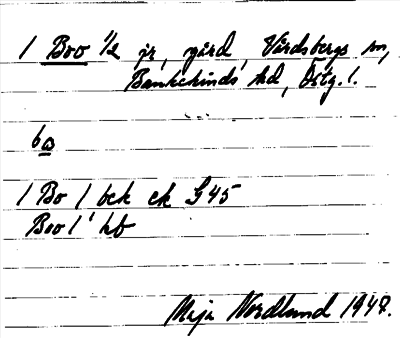 1 Boo 1/2 jr, gård, Vårdsbergs sn,
Bankekinds hd, Östg. l.
bo
1 Bo 1 bck ek G45
Boo 1' hb
Maja Nordlund 1947.